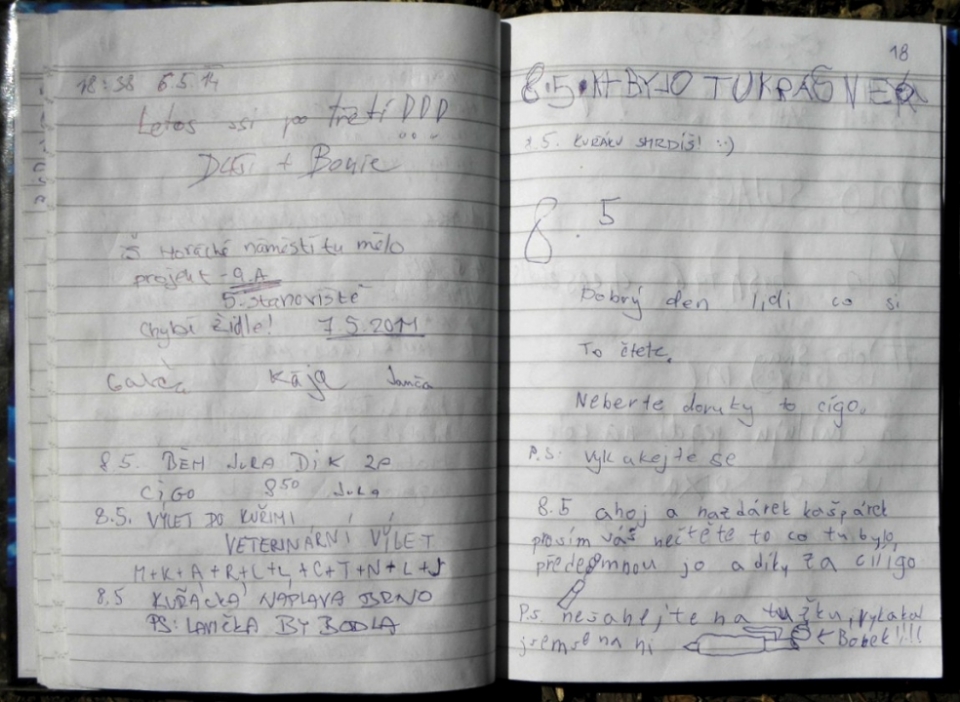 18:38 6.5.14
Letos asi po třetí DDD
Děti + Bonie
ZŠ Horácké náměstí tu mělo
projekt - 9.A
5. stanoviště
Chybí židle! 7.5.2011
Kája Janča
8.5. BĚH JURA DÍK ZA
CÍGO 8⁵⁰ Jura
8.5. VÝLET DO KUŘIMI
VETERINÁRNÍ VÝLET
M+K+A+R+L+L+C+T+N+L+J
8.5 KUŘÁCKÁ NÁPLAVA BRNO
PS: LAVIČKA BY BODLA
18
8.5. BYLO TU KRÁSNĚ
8.5. KUŘÁKU SMRDÍŠ! :-)
8.5
Dobrý den lidi co si
To čtete.
Neberte do ruky to cígo.
P.S: vykukejte se
8.5 ahoj a nazdárek kašpárek
prosím váš nečtěte to co tu bylo
předemnou jo a díky za ciligo
P.S. nesahejte na tužku, vykakal
jsem se na ni ← Bobek!!!!